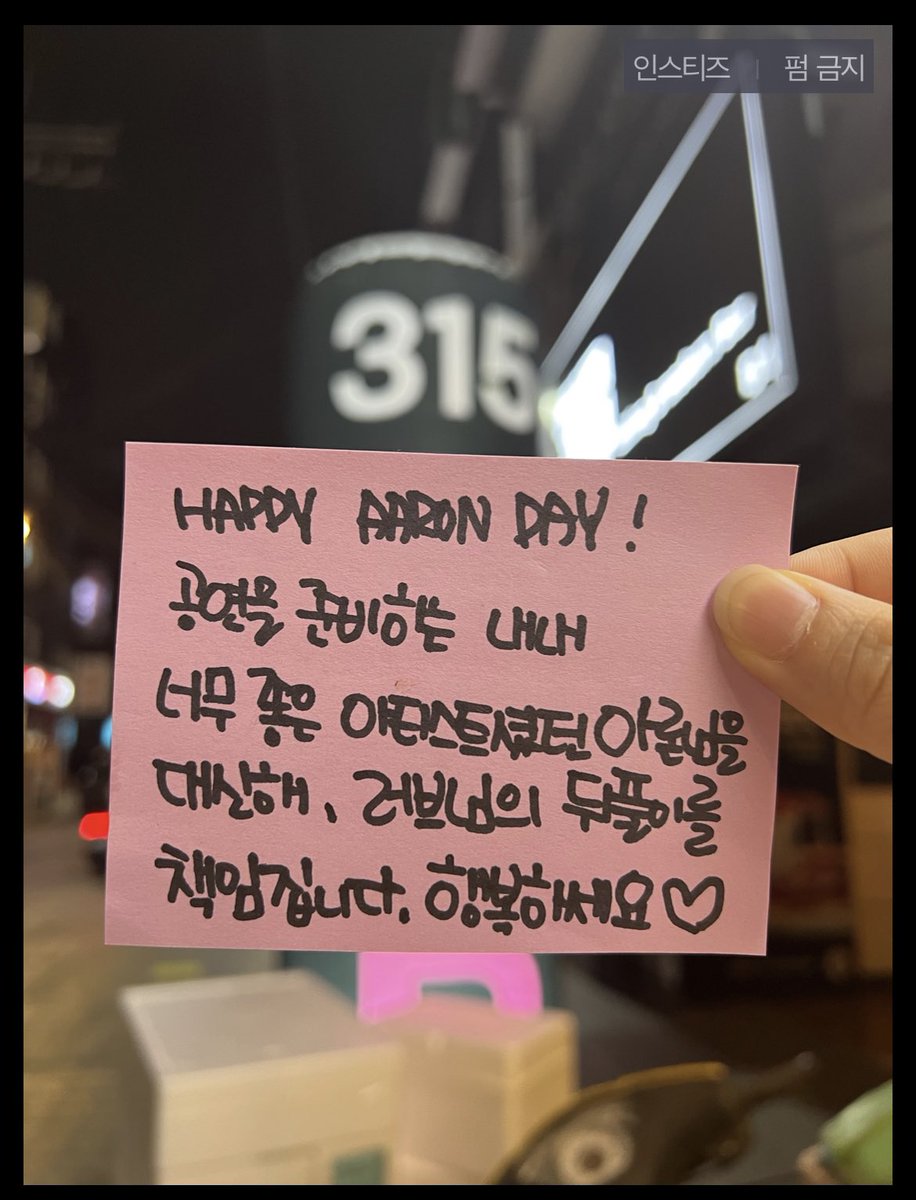 인스티즈 | 펌 금지
315
HAPPY AARON DAY!
공연을 준비하는 내내
너무 좋은 아티스트셨던 아론님을
대신해, 러브님의 뒤풀이를
책임집니다. 행복하쎄요♡